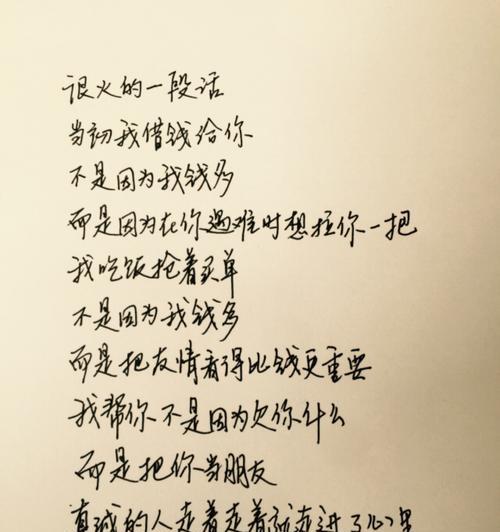 很火的一段话
当初我借钱给你
不是因为我钱多
而是因为在你遇难时想拉你一把
我吃饭抢着买单
不是因为我钱多
而是把友情看得比钱更重要
我帮你不是因为欠你什么
而是把你当朋友
真诚的人走着走着就走进了心里